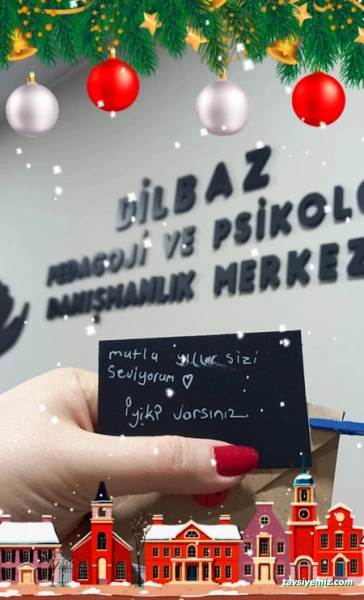 DİLBAZ
PEDAGOJİ VE PSİKOLO
DANIŞMANLIK MERKEZ
mutlu yıllar sizi
Seviyorum ♡
iyiki varsınız.
tavsiyemiz.com